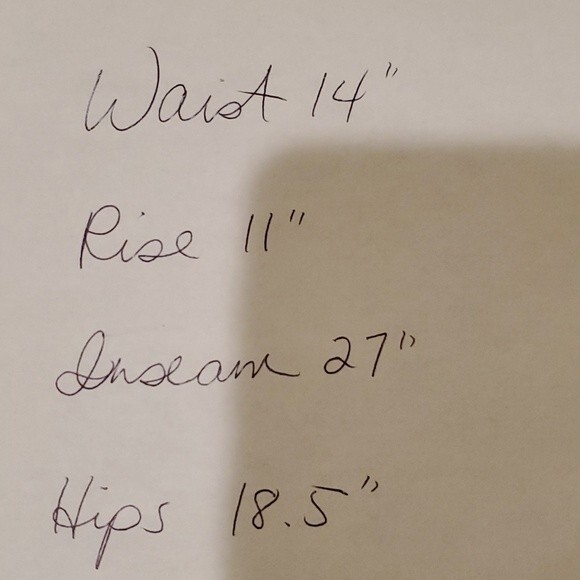 Waist 14"
Rise 11"
Inseam 27"
Hips 18.5"